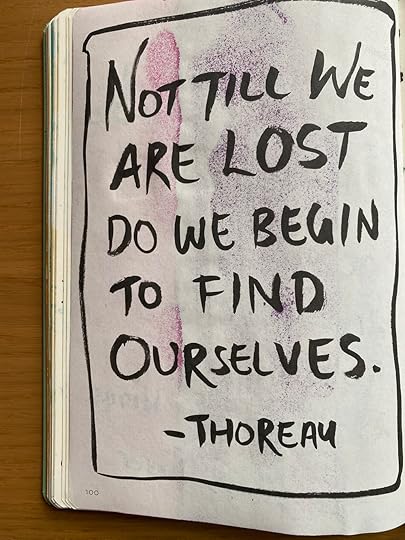 NOT TILL WE
ARE LOST
DO WE BEGIN
TO FIND
OURSELVES.
-THOREAU
100